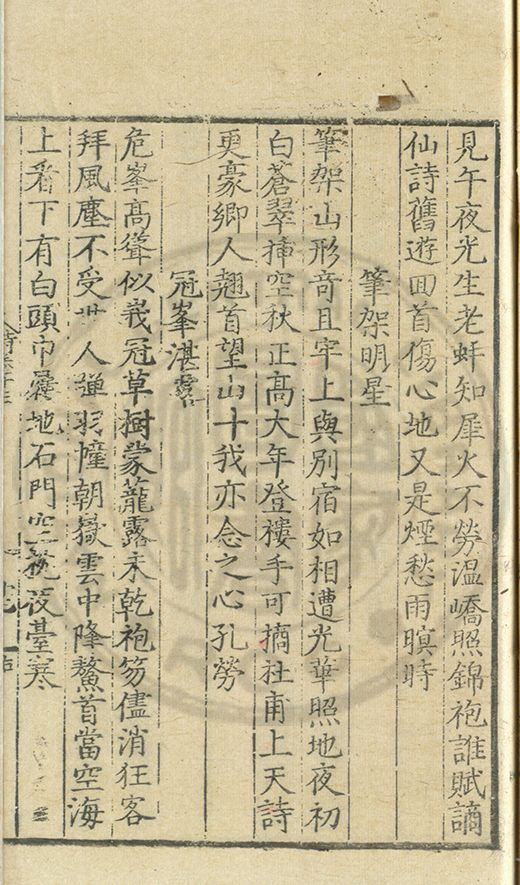 見午夜光生老蚌知犀火不勞溫嶠照錦袍誰賦謫
仙詩舊遊回首傷心地又是煙愁雨暝時
筆架明星
筆架山形奇且牢上與別宿如相遭光華照地夜初
白蒼翠揷空秋正高大年登樓手可摘杜甫上天詩
更豪鄉人翹首望山十我亦念之心孔勞
冠峯湛露
危峯高聳似峩冠草樹蒙蘢露未乾袍笏儘消狂客
拜風塵不受世人彈羽幢朝嶽雲中降鰲首當空海
上看下有白頭巾屨地石門空夜臺寒